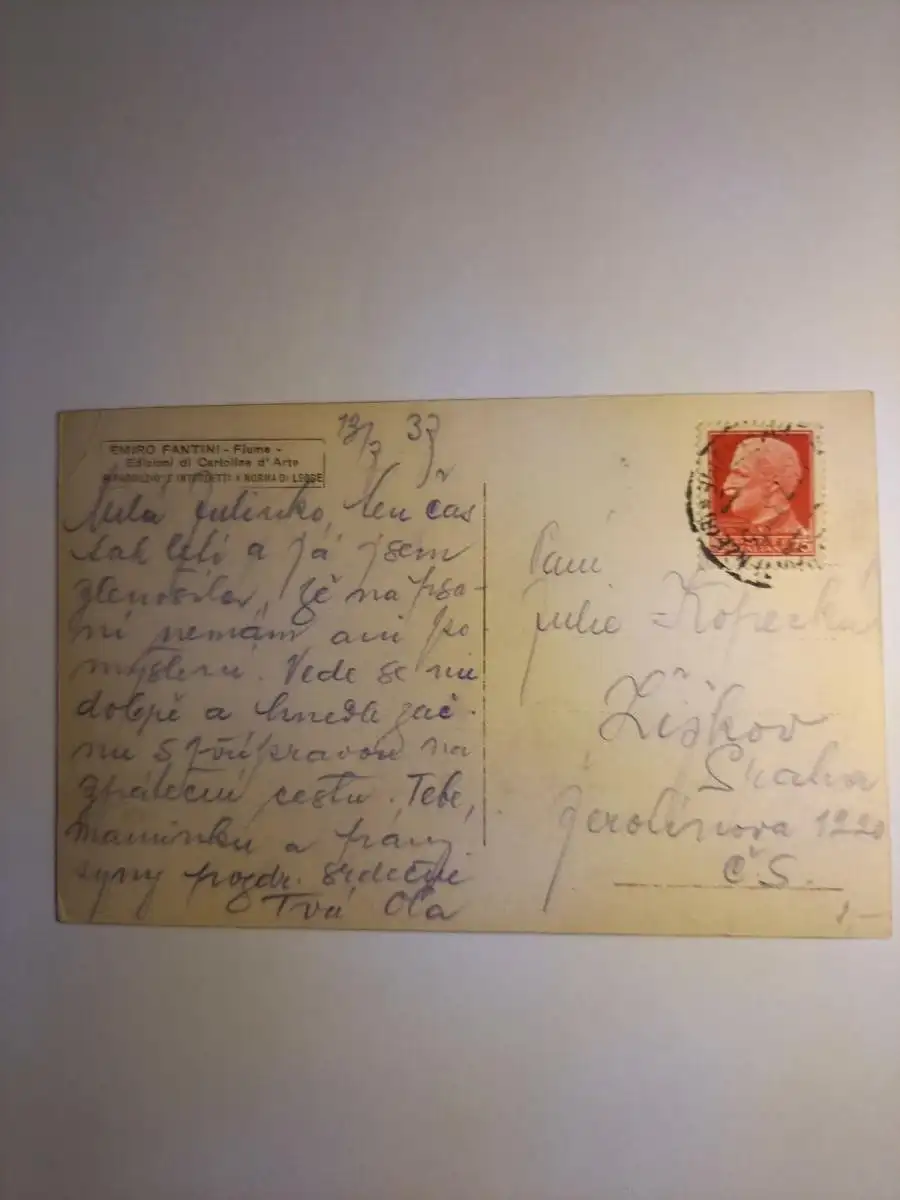 13/7 37
EMIRO FANTINI - Fiume -
Edizioni di Cartoline d'Arte
RIPRODUZIONE INTERDETTA A NORMA DI LEGGE
Milá Julinko, ten čas
tak letí a já jsem
zlenošila, že na psa-
ní nemám ani po-
myšlení. Vede se mi
dobře a hnedle zač-
nu s přípravou na
zpáteční cestu. Tebe,
maminku a
syny pozdr. srdečně
Tvá Ola
Paní
Julie Kopecká
Žižkov
Praha
Jeronýmova 1220
Č.S.